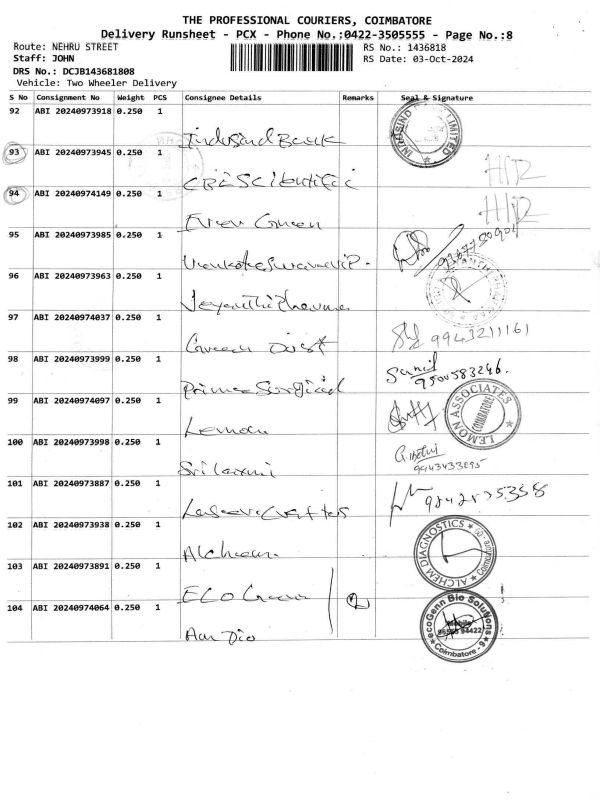 THE PROFESSIONAL COURIERS, COIMBATORE
Delivery Runsheet - PCX - Phone No.:0422-3505555 - Page No.:8
Route: NEHRU STREET
RS No.: 1436818
Staff: JOHN
RS Date: 03-Oct-2024
DRS No.: DCJB143681808
Vehicle: Two Wheeler Delivery
S No Consignment No Weight PCS Consignee Details Remarks Seal & Signature
92 ABI 20240973918 0.250 1
Indusind Bank
INDUSIND LIMITED
93 ABI 20240973945 0.250 1
CBE Scientific
94 ABI 20240974149 0.250 1
Ever Green
95 ABI 20240973985 0.250 1
96 ABI 20240973963 0.250 1
97 ABI 20240974037 0.250 1
Green
9943211161
98 ABI 20240973999 0.250 1
Prime Surgical
9500583246.
99 ABI 20240974097 0.250 1
Lemon
LEMON ASSOCIATES
COIMBATORE
100 ABI 20240973998 0.250 1
Sri Laxmi
101 ABI 20240973887 0.250 1
102 ABI 20240973938 0.250 1
Alchem
ALCHEM DIAGNOSTICS
103 ABI 20240973891 0.250 1
ECO Green
104 ABI 20240974064 0.250 1
ecoGenn Bio SoluNons
Mobile
94422
Coimbatore - 9